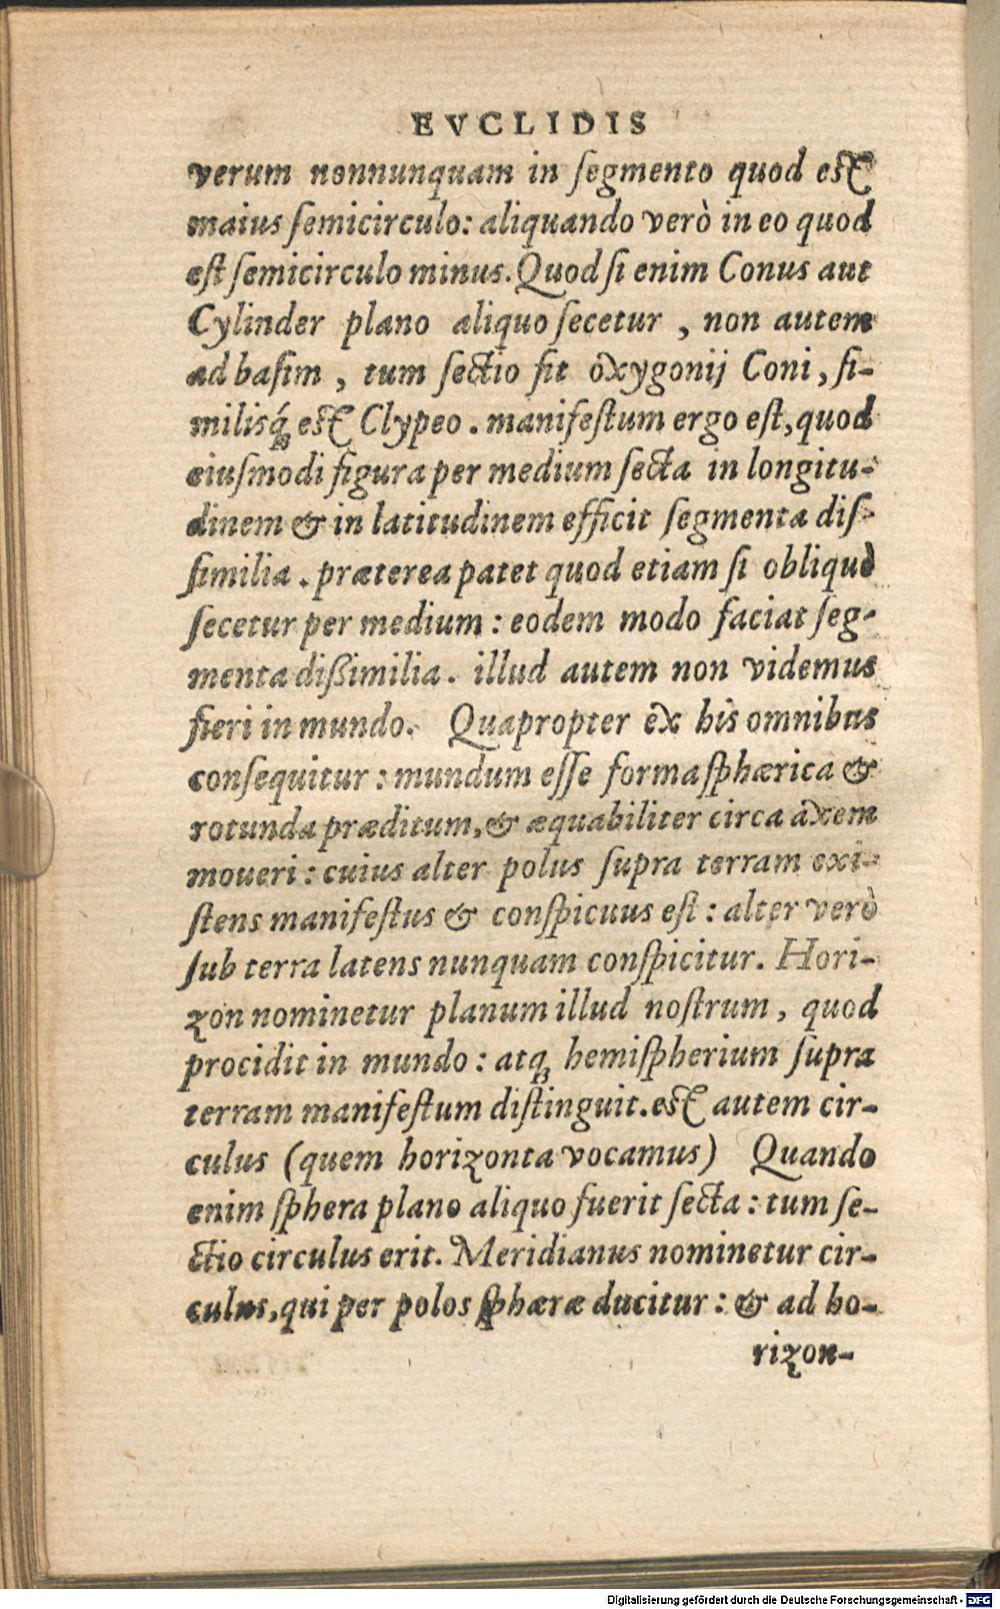 EVCLIDIS
verum nonnunquam in ſegmento quod eſt
maius ſemicirculo: aliquando verò in eo quod
eſt ſemicirculo minus. Quod ſi enim Conus aut
Cylinder plano aliquo ſecetur, non autem
ad baſim, tum ſectio fit oxygonij Coni, ſi-
milisq́; eſt Clypeo. manifeſtum ergo eſt, quod
eiuſmodi figura per medium ſecta in longitu-
dinem & in latitudinem efficit ſegmenta diſ-
ſimilia. præterea patet quod etiam ſi obliquè
ſecetur per medium: eodem modo faciat ſeg-
menta dißimilia. illud autem non videmus
fieri in mundo. Quapropter ex his omnibus
conſequitur: mundum eſſe forma ſphærica &
rotunda præditum, & æquabiliter circa axem
moueri: cuius alter polus ſupra terram exi-
ſtens manifeſtus & conſpicuus eſt: alter verò
ſub terra latens nunquam conſpicitur. Hori-
zon nominetur planum illud noſtrum, quod
procidit in mundo: atq; hemiſpherium ſupra
terram manifeſtum diſtinguit. eſt autem cir-
culus (quem horizonta vocamus) Quando
enim ſphera plano aliquo fuerit ſecta: tum ſe-
ctio circulus erit. Meridianus nominetur cir-
culus, qui per polos ſphæræ ducitur: & ad ho-
rizon-
Digitalisierung gefördert durch die Deutsche Forschungsgemeinschaft - DFG